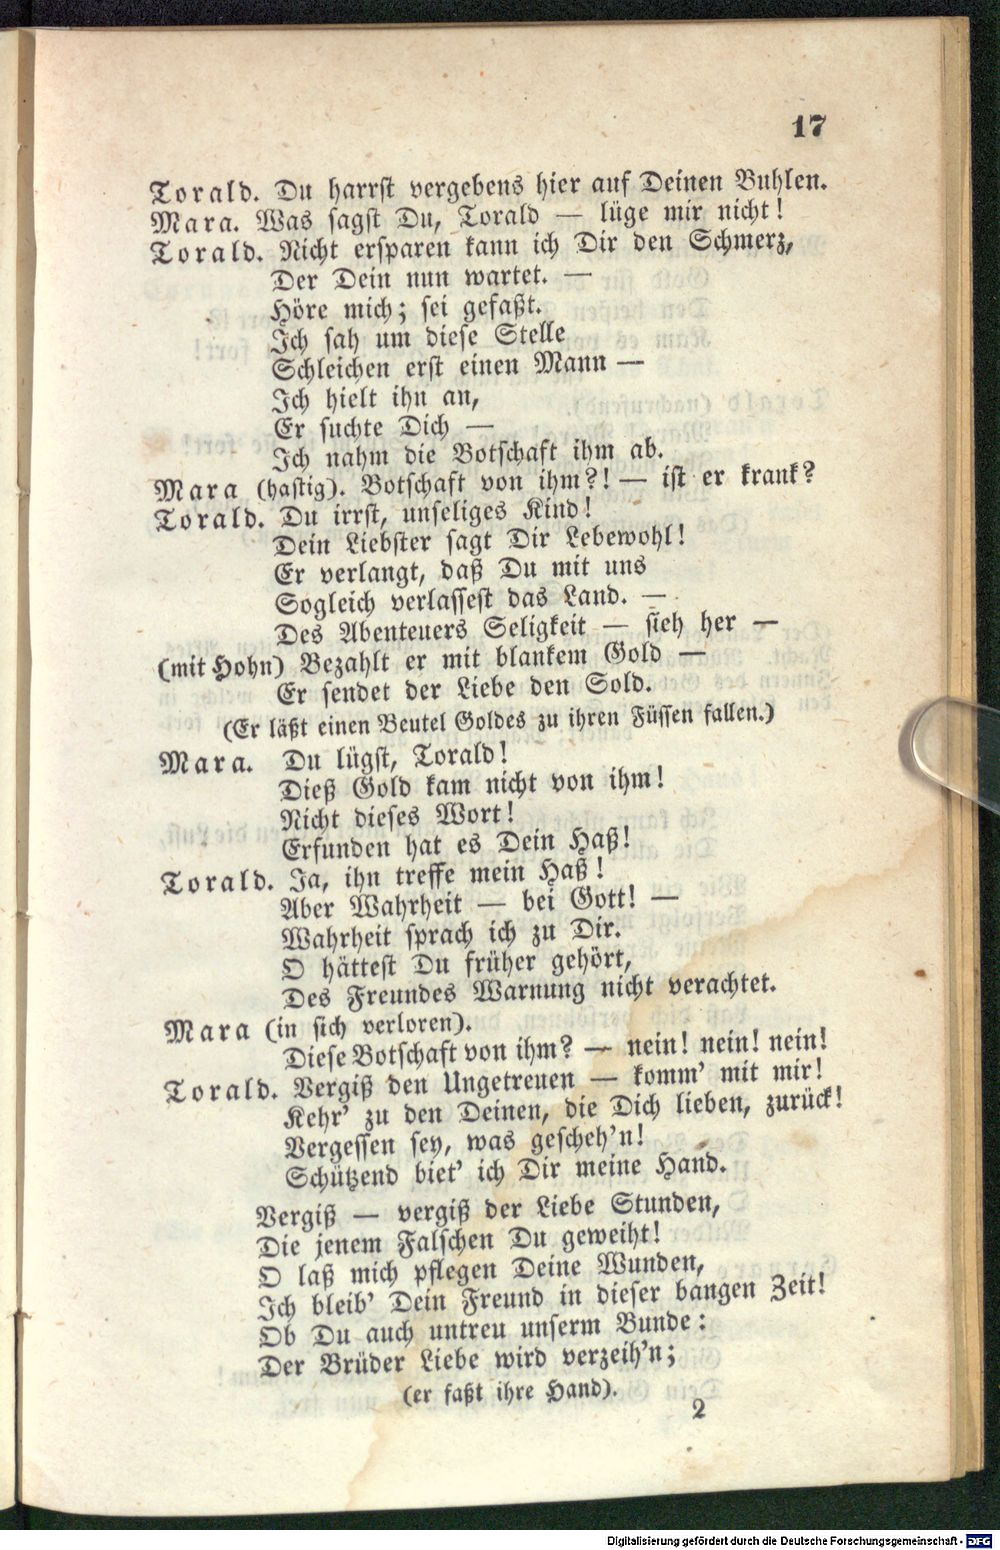 17
Torald. Du harrst vergebens hier auf Deinen Buhlen.
Mara. Was sagst Du, Torald — lüge mir nicht!
Torald. Nicht ersparen kann ich Dir den Schmerz,
Der Dein nun wartet. —
Höre mich; sei gefaßt.
Ich sah um diese Stelle
Schleichen erst einen Mann —
Ich hielt ihn an,
Er suchte Dich —
Ich nahm die Botschaft ihm ab.
Mara (hastig). Botschaft von ihm?! — ist er krank?
Torald. Du irrst, unseliges Kind!
Dein Liebster sagt Dir Lebewohl!
Er verlangt, daß Du mit uns
Sogleich verlassest das Land. —
Des Abenteuers Seligkeit — sieh her —
(mit Hohn) Bezahlt er mit blankem Gold —
Er sendet der Liebe den Sold.
(Er läßt einen Beutel Goldes zu ihren Füssen fallen.)
Mara. Du lügst, Torald!
Dieß Gold kam nicht von ihm!
Nicht dieses Wort!
Erfunden hat es Dein Haß!
Torald. Ja, ihn treffe mein Haß!
Aber Wahrheit — bei Gott! —
Wahrheit sprach ich zu Dir.
O hättest Du früher gehört,
Des Freundes Warnung nicht verachtet.
Mara (in sich verloren).
Diese Botschaft von ihm? — nein! nein! nein!
Torald. Vergiß den Ungetreuen — komm' mit mir!
Kehr' zu den Deinen, die Dich lieben, zurück!
Vergessen sey, was gescheh'n!
Schützend biet' ich Dir meine Hand.
Vergiß — vergiß der Liebe Stunden,
Die jenem Falschen Du geweiht!
O laß mich pflegen Deine Wunden,
Ich bleib' Dein Freund in dieser bangen Zeit!
Ob Du auch untreu unserm Bunde:
Der Brüder Liebe wird verzeih'n;
(er faßt ihre Hand).
2
Digitalisierung gefördert durch die Deutsche Forschungsgemeinschaft - DFG